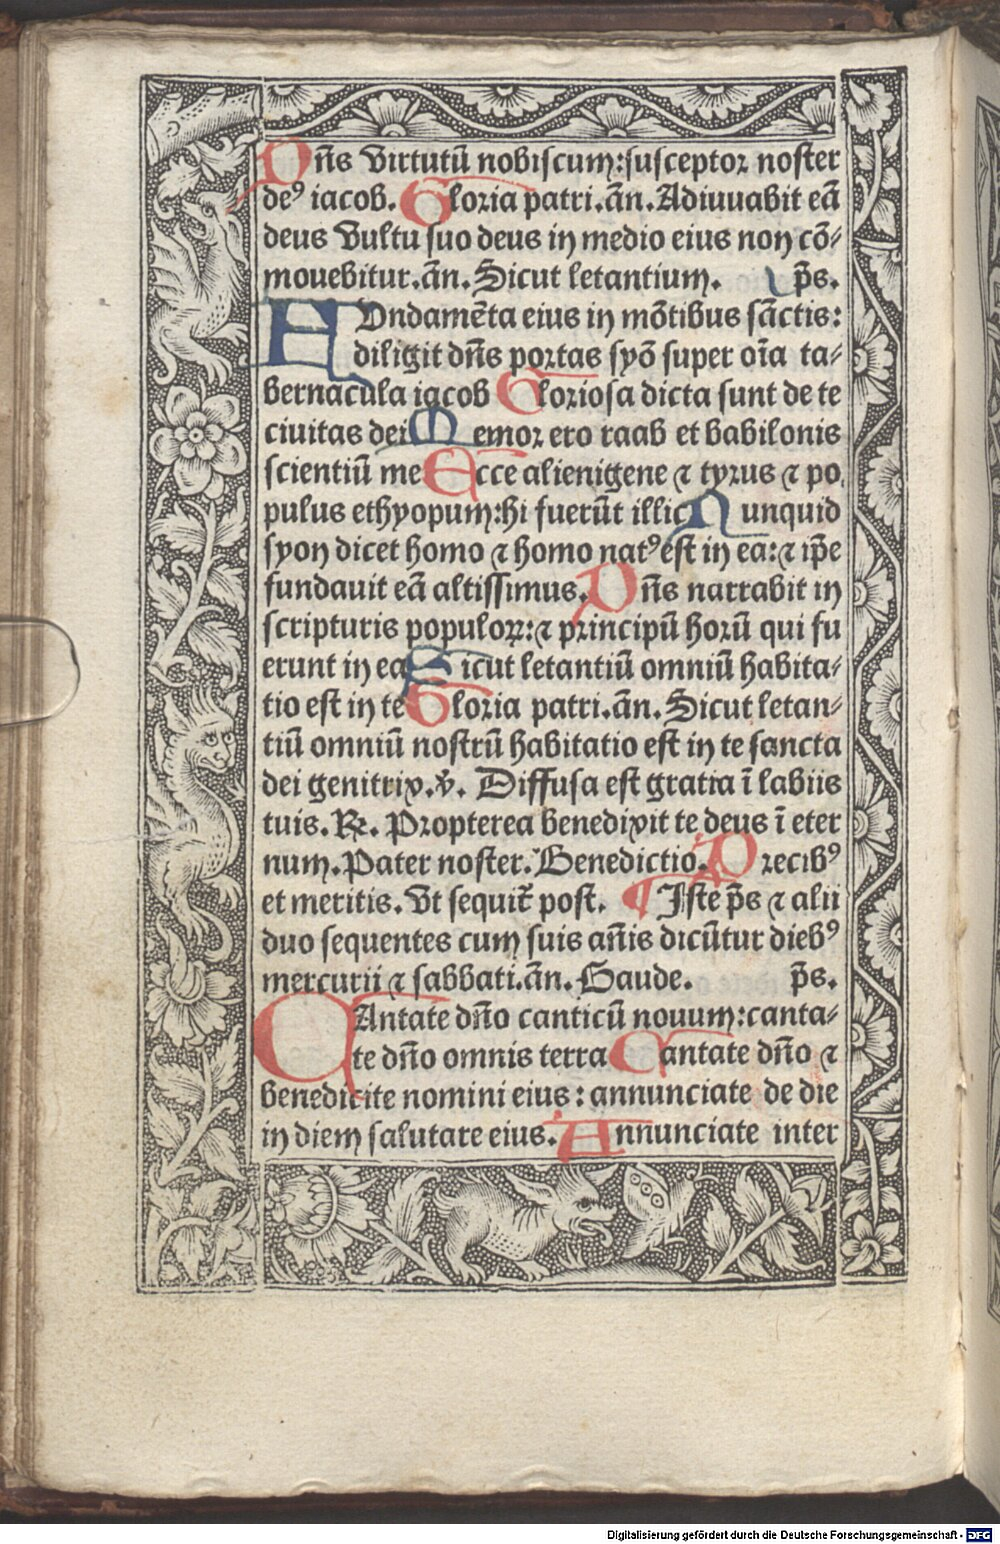 Dñs virtutū nobiscum:susceptor noster
deꝰ iacob. Gloria patri.ān. Adiuuabit eā
deus vultu suo deus in medio eius non cō⸗
mouebitur.ān. Sicut letantium. p̄s.
FUndamēta eius in mōtibus sāctis:
diligit dñs portas syō super oīa ta⸗
bernacula iacob Gloriosa dicta sunt de te
ciuitas dei Memor ero raab et babilonis
scientiū me Ecce alienigene ⁊ tyrus ⁊ po
pulus ethyopum:hi fuerūt illic Nunquid
syon dicet homo ⁊ homo natꝰ est in ea:⁊ ip̄e
fundauit eā altissimus. Dñs narrabit in
scripturis populoꝝ:⁊ principū horū qui fu
erunt in ea Sicut letantiū omniū habita⸗
tio est in te Gloria patri.ān. Sicut letan⸗
tiū omniū nostrū habitatio est in te sancta
dei genitrix.℣. Diffusa est gratia ī labiis
tuis. ℞. Propterea benedixit te deus ī eter
num. Pater noster. Benedictio. Precibꝰ
et meritis. Vt sequit᷑ post. ¶ Iste p̄s ⁊ alii
duo sequentes cum suis añis dicūtur diebꝰ
mercurii ⁊ sabbati.ān. Gaude. p̄s.
CAntate dño canticū nouum:canta⸗
te dño omnis terra Cantate dño ⁊
benedicite nomini eius: annunciate de die
in diem salutare eius. Annunciate inter
Digitalisierung gefördert durch die Deutsche Forschungsgemeinschaft - DFG